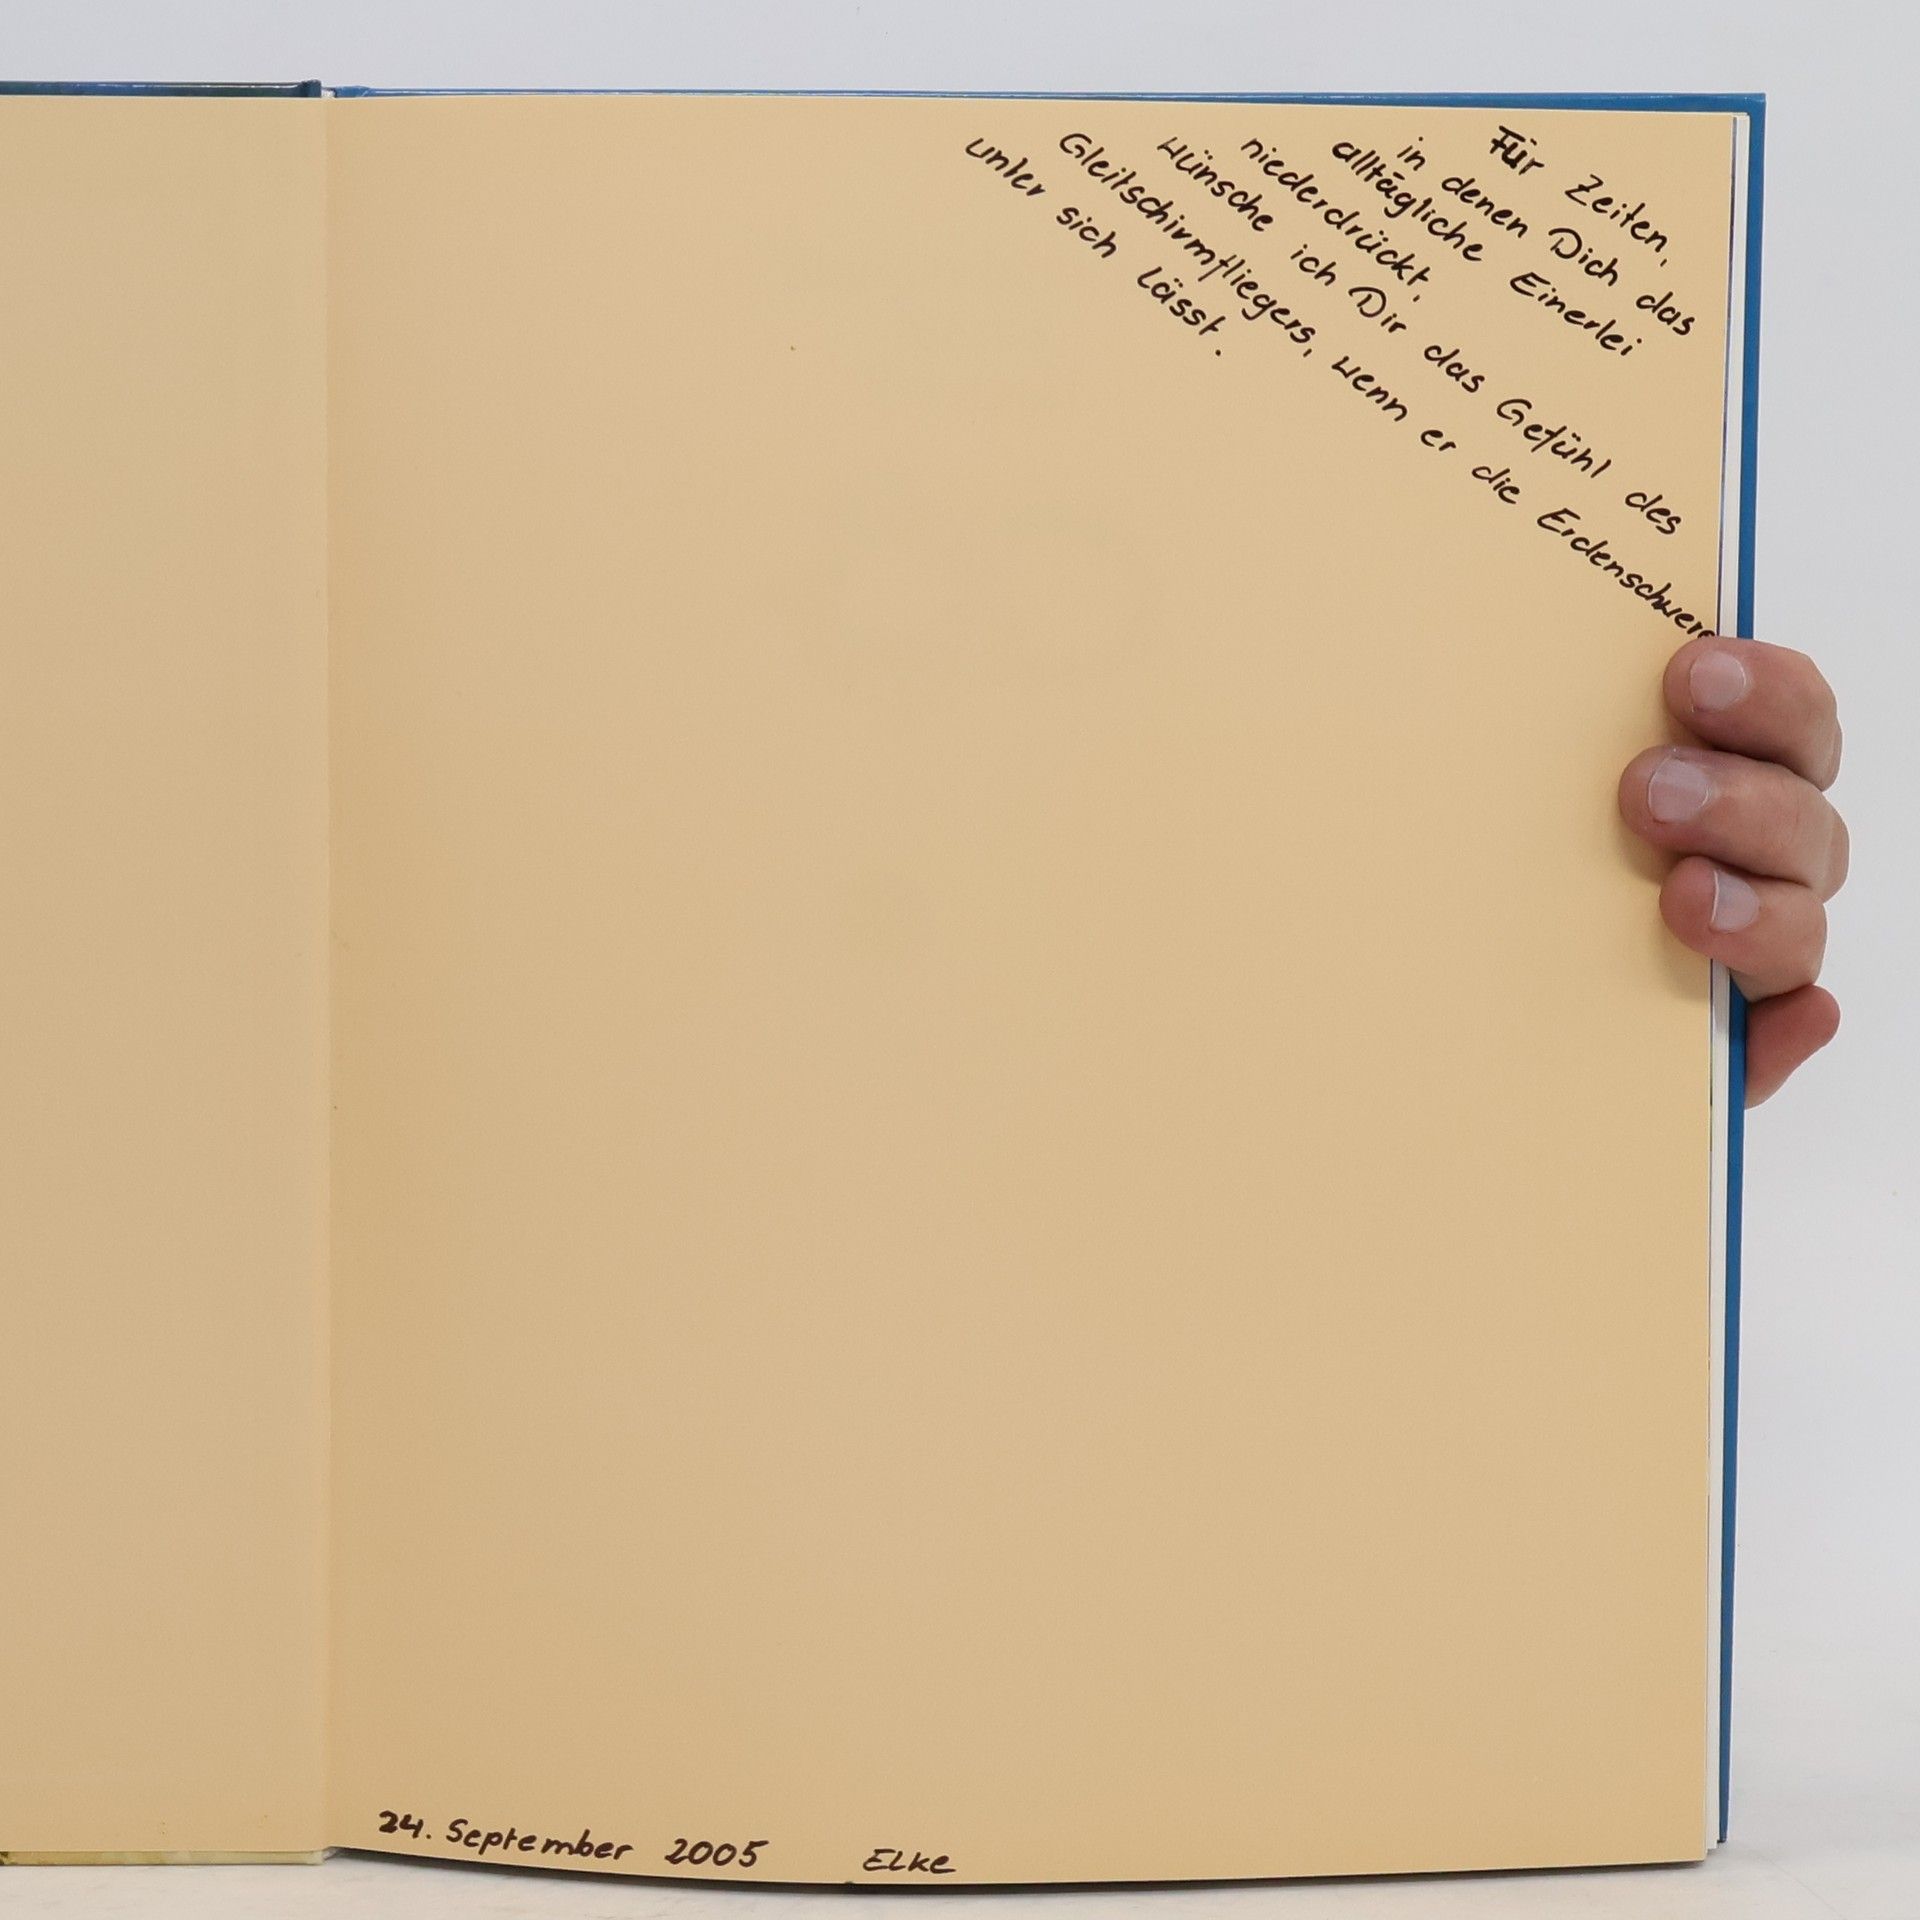 Für Zeiten,
in denen Dich das
alltägliche Einerlei
niederdrückt,
wünsche ich Dir das Gefühl des
Gleitschirmfliegers, wenn er die Erdenschwere
unter sich lässt.
24. September 2005 Elke